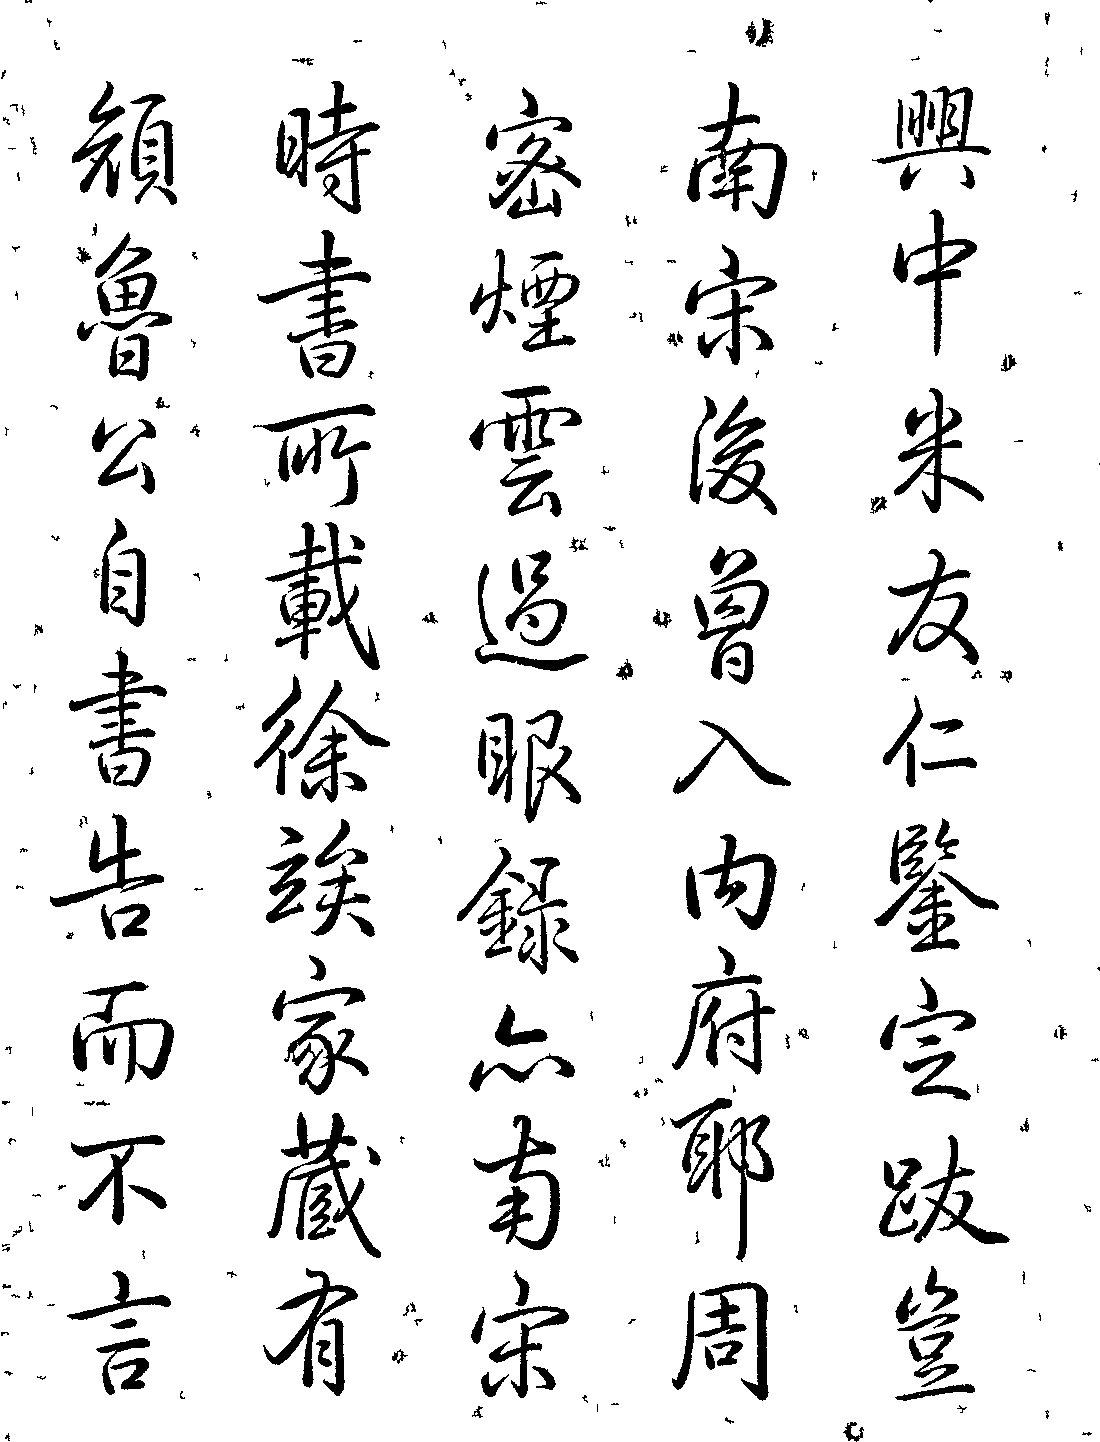 興中米友仁鑒定跋豈
南宋後曾入內府耶周
密煙雲過眼錄亦南宋
時書所載徐竢家藏有
顏魯公自書告而不言